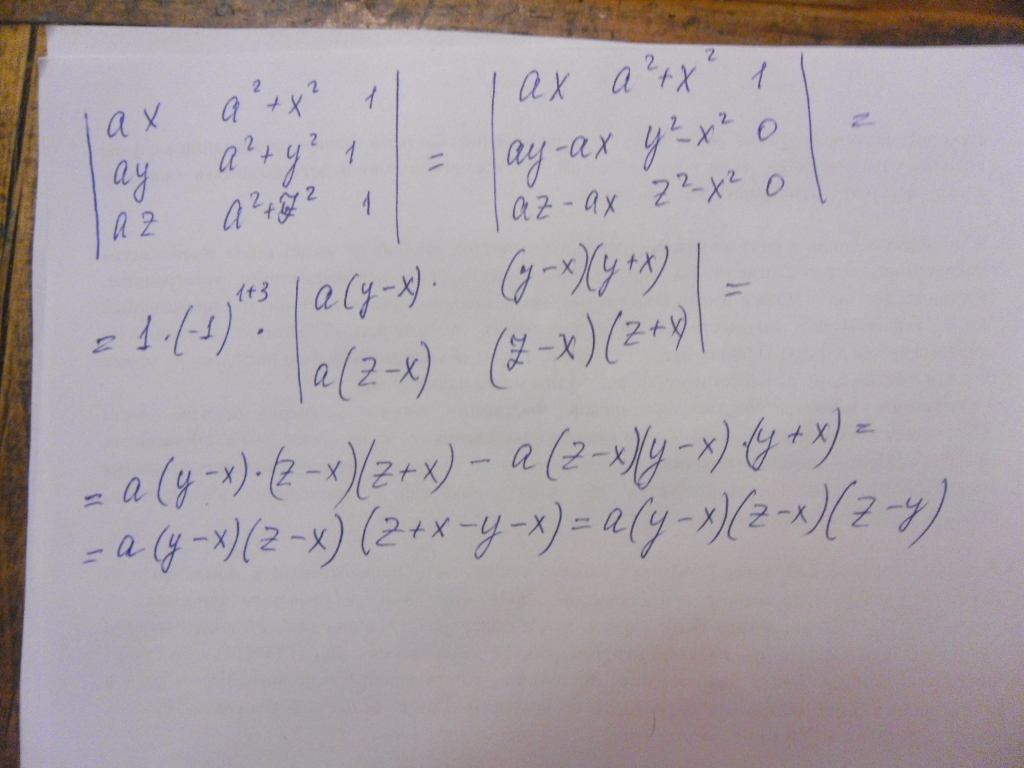 | ax a²+x² 1 | | ax a²+x² 1 |
| ay a²+y² 1 | = | ay-ax y²-x² 0 | =
| az a²+z² 1 | | az-ax z²-x² 0 |
= 1·(-1)¹⁺³ · | a(y-x)· (y-x)(y+x) | =
| a(z-x) (z-x)(z+x) |
= a(y-x)·(z-x)(z+x) - a(z-x)(y-x)·(y+x) =
= a(y-x)(z-x)(z+x-y-x) = a(y-x)(z-x)(z-y)